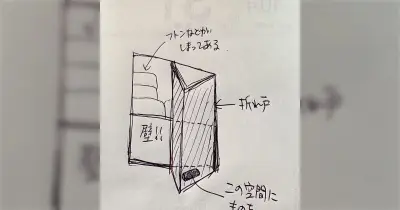 フトンなどが
しまってある
壁!!
折れ戸
この空間に
ものを